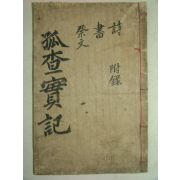 孤査實記
詩
書
祭文
附錄